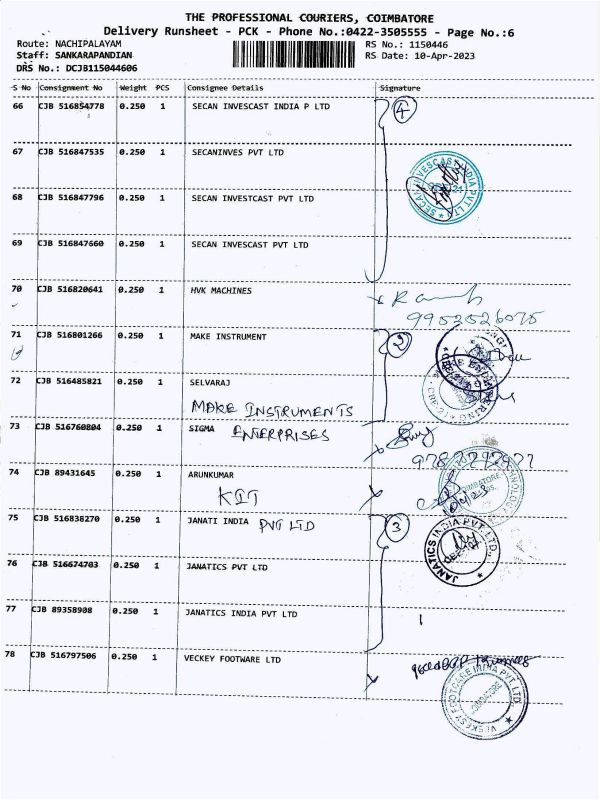 THE PROFESSIONAL COURIERS, COIMBATORE
Delivery Runsheet - PCK - Phone No.:0422-3505555 - Page No.:6
Route: NACHIPALAYAM RS No.: 1150446
Staff: SANKARAPANDIAN RS Date: 10-Apr-2023
DRS No.: DCJB115044606
S No Consignment No Weight PCS Consignee Details Signature
66 CJB 516854778 0.250 1 SECAN INVESCAST INDIA P LTD 4
67 CJB 516847535 0.250 1 SECANINVES PVT LTD
68 CJB 516847796 0.250 1 SECAN INVESTCAST PVT LTD
69 CJB 516847660 0.250 1 SECAN INVESCAST PVT LTD
70 CJB 516820641 0.250 1 HVK MACHINES
9952526075
71 CJB 516801266 0.250 1 MAKE INSTRUMENT 2
72 CJB 516485821 0.250 1 SELVARAJ
MAKE INSTRUMENTS
73 CJB 516760804 0.250 1 SIGMA ENTERPRISES
74 CJB 89431645 0.250 1 ARUNKUMAR
KIT
COIMBATORE
75 CJB 516838270 0.250 1 JANATI INDIA PVT LTD 3
JANATICS INDIA PVT. LTD.,
76 CJB 516674703 0.250 1 JANATICS PVT LTD
77 CJB 89358908 0.250 1 JANATICS INDIA PVT LTD
78 CJB 516797506 0.250 1 VECKEY FOOTWARE LTD